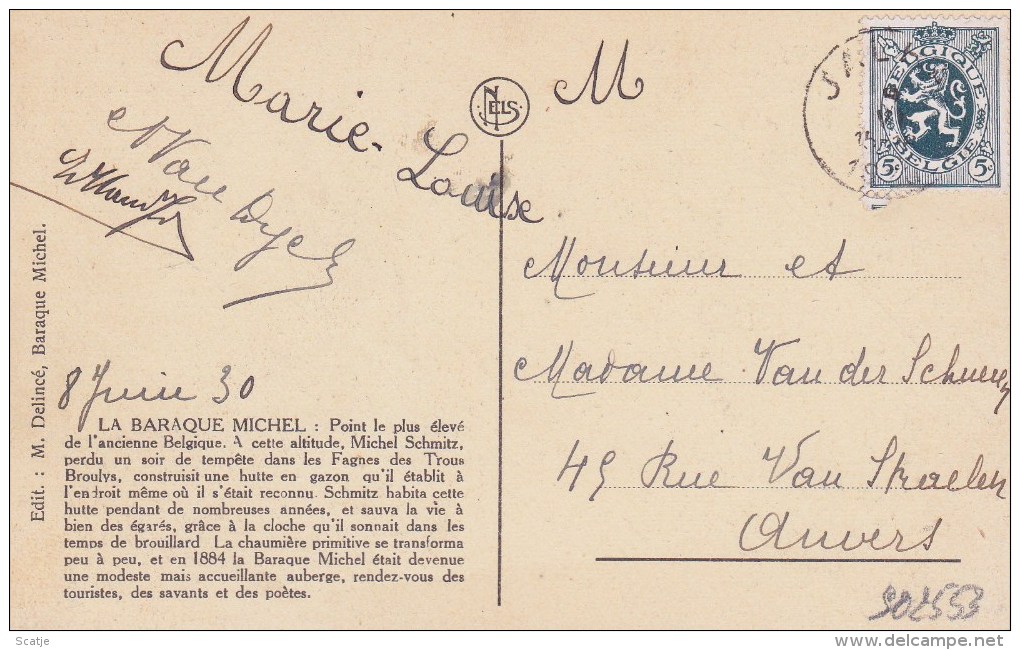 Marie-
Louise
M
NELS
BELGIQUE
BELGIE
5c 5c
JAL
15
19
Van Dyck
Edit. : M. Delincé, Baraque Michel.
8 Juin 30
LA BARAQUE MICHEL : Point le plus élevé
de l'ancienne Belgique. A cette altitude, Michel Schmitz,
perdu un soir de tempête dans les Fagnes des Trous
Broulys, construisit une hutte en gazon qu'il établit à
l'endroit même où il s'était reconnu. Schmitz habita cette
hutte pendant de nombreuses années, et sauva la vie à
bien des égarés, grâce à la cloche qu'il sonnait dans les
temps de brouillard. La chaumière primitive se transforma
peu à peu, et en 1884 la Baraque Michel était devenue
une modeste mais accueillante auberge, rendez-vous des
touristes, des savants et des poètes.
Monsieur et
Madame Van der
45 Rue Van Straelen
Anvers
902553
Scatje
www.delcampe.net